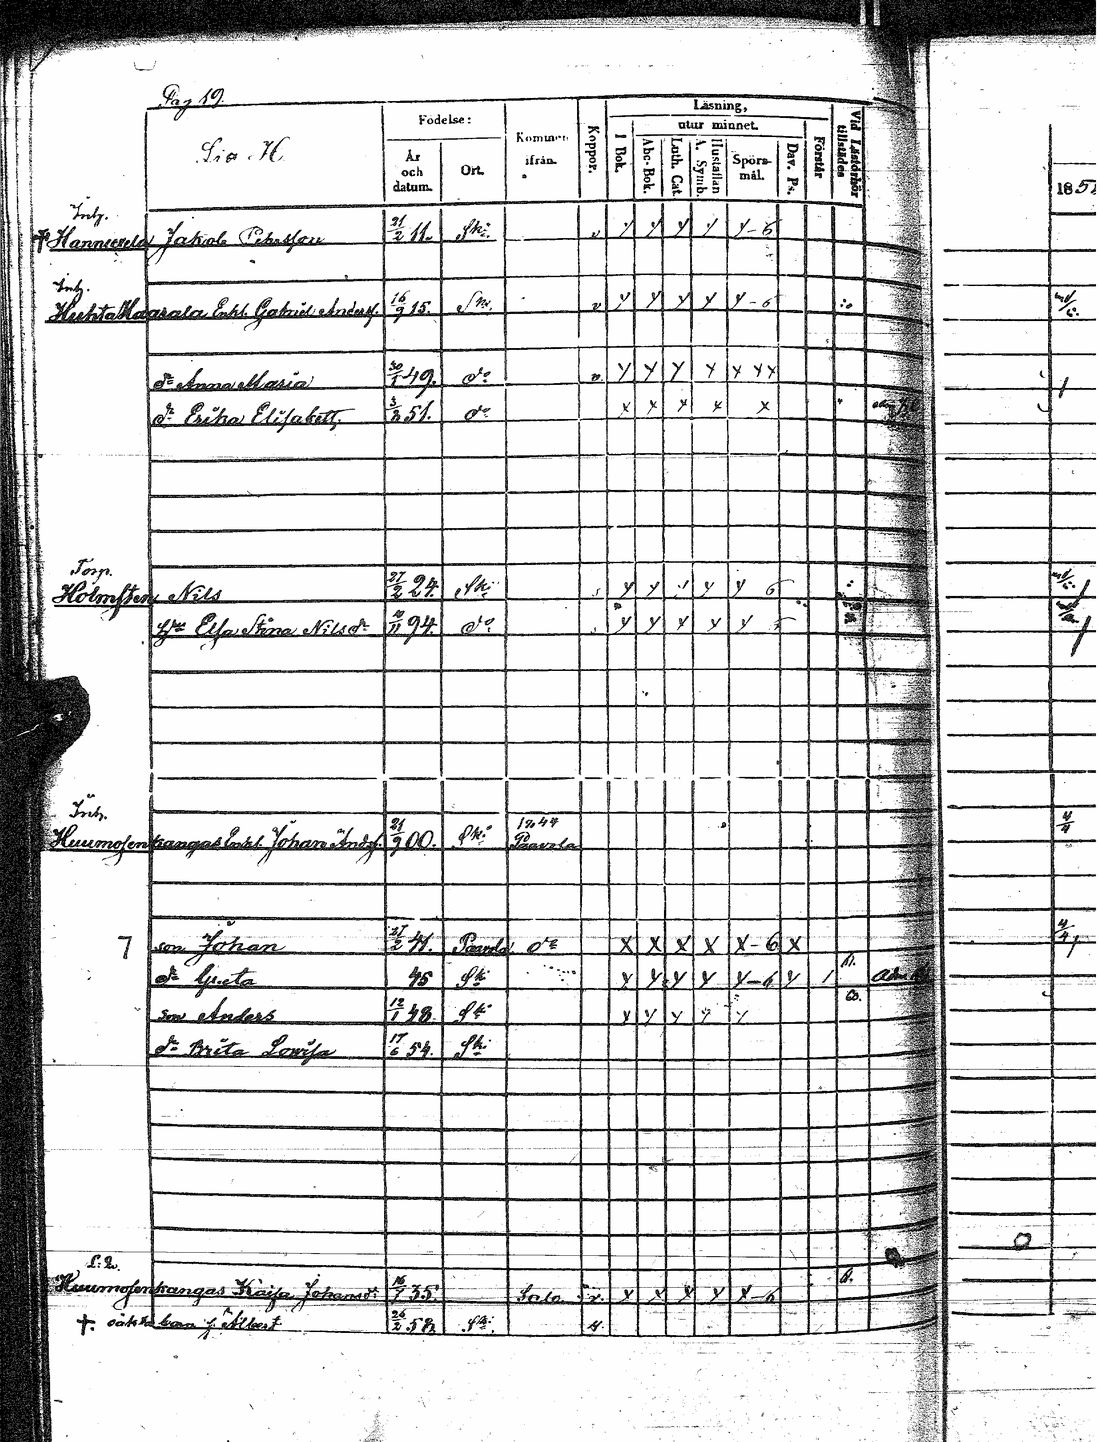 Pag 19.
Sio. H
Födelse:
År och datum.
Ort.
Kommen ifrån.
Koppor.
Läsning,
I Bok.
utur minnet.
Abc-Bok.
Luth. Cat.
Hustaflan A. Symb.
Spörsmål.
Dav. Ps.
Förstår
Vid Läsförhör tillstädes
185
Inh.
† Hannuxela Jakob Pehrsson 21/2 11. Ski v y y y y y-6
Inh.
Huhta Haarala Enkl. Gabriel Anders. 16/9 15. v y y y y y-6
dr Anna Maria 30/1 49. do v y y y y y y y
dr Erika Elisabeth 3/2 51. do x x x x x
Torp.
Holmsten Nils 27/2 24. Ski y y y y y 6
Hu Elsa Stina Nilsdr 94. do y y y y y 5
Inh.
Huumosenkangas Enkl. Johan Andsf. 21/9 00. Ski 1844 Paavola 4/4
7 son Johan 27/2 41. Paavola do x x x x x-6 x 4/4
dr Greta 45 Ski y y y y y-6 y 1
son Anders 12/1 48 Ski y y y y y
dr Brita Lowisa 17/6 54. Ski
Huumosenkangas Kaisa Johansdr 16/7 35. Salo v. x x x x x-6
†. oäkta barn f. Albert 26/2 58 Ski